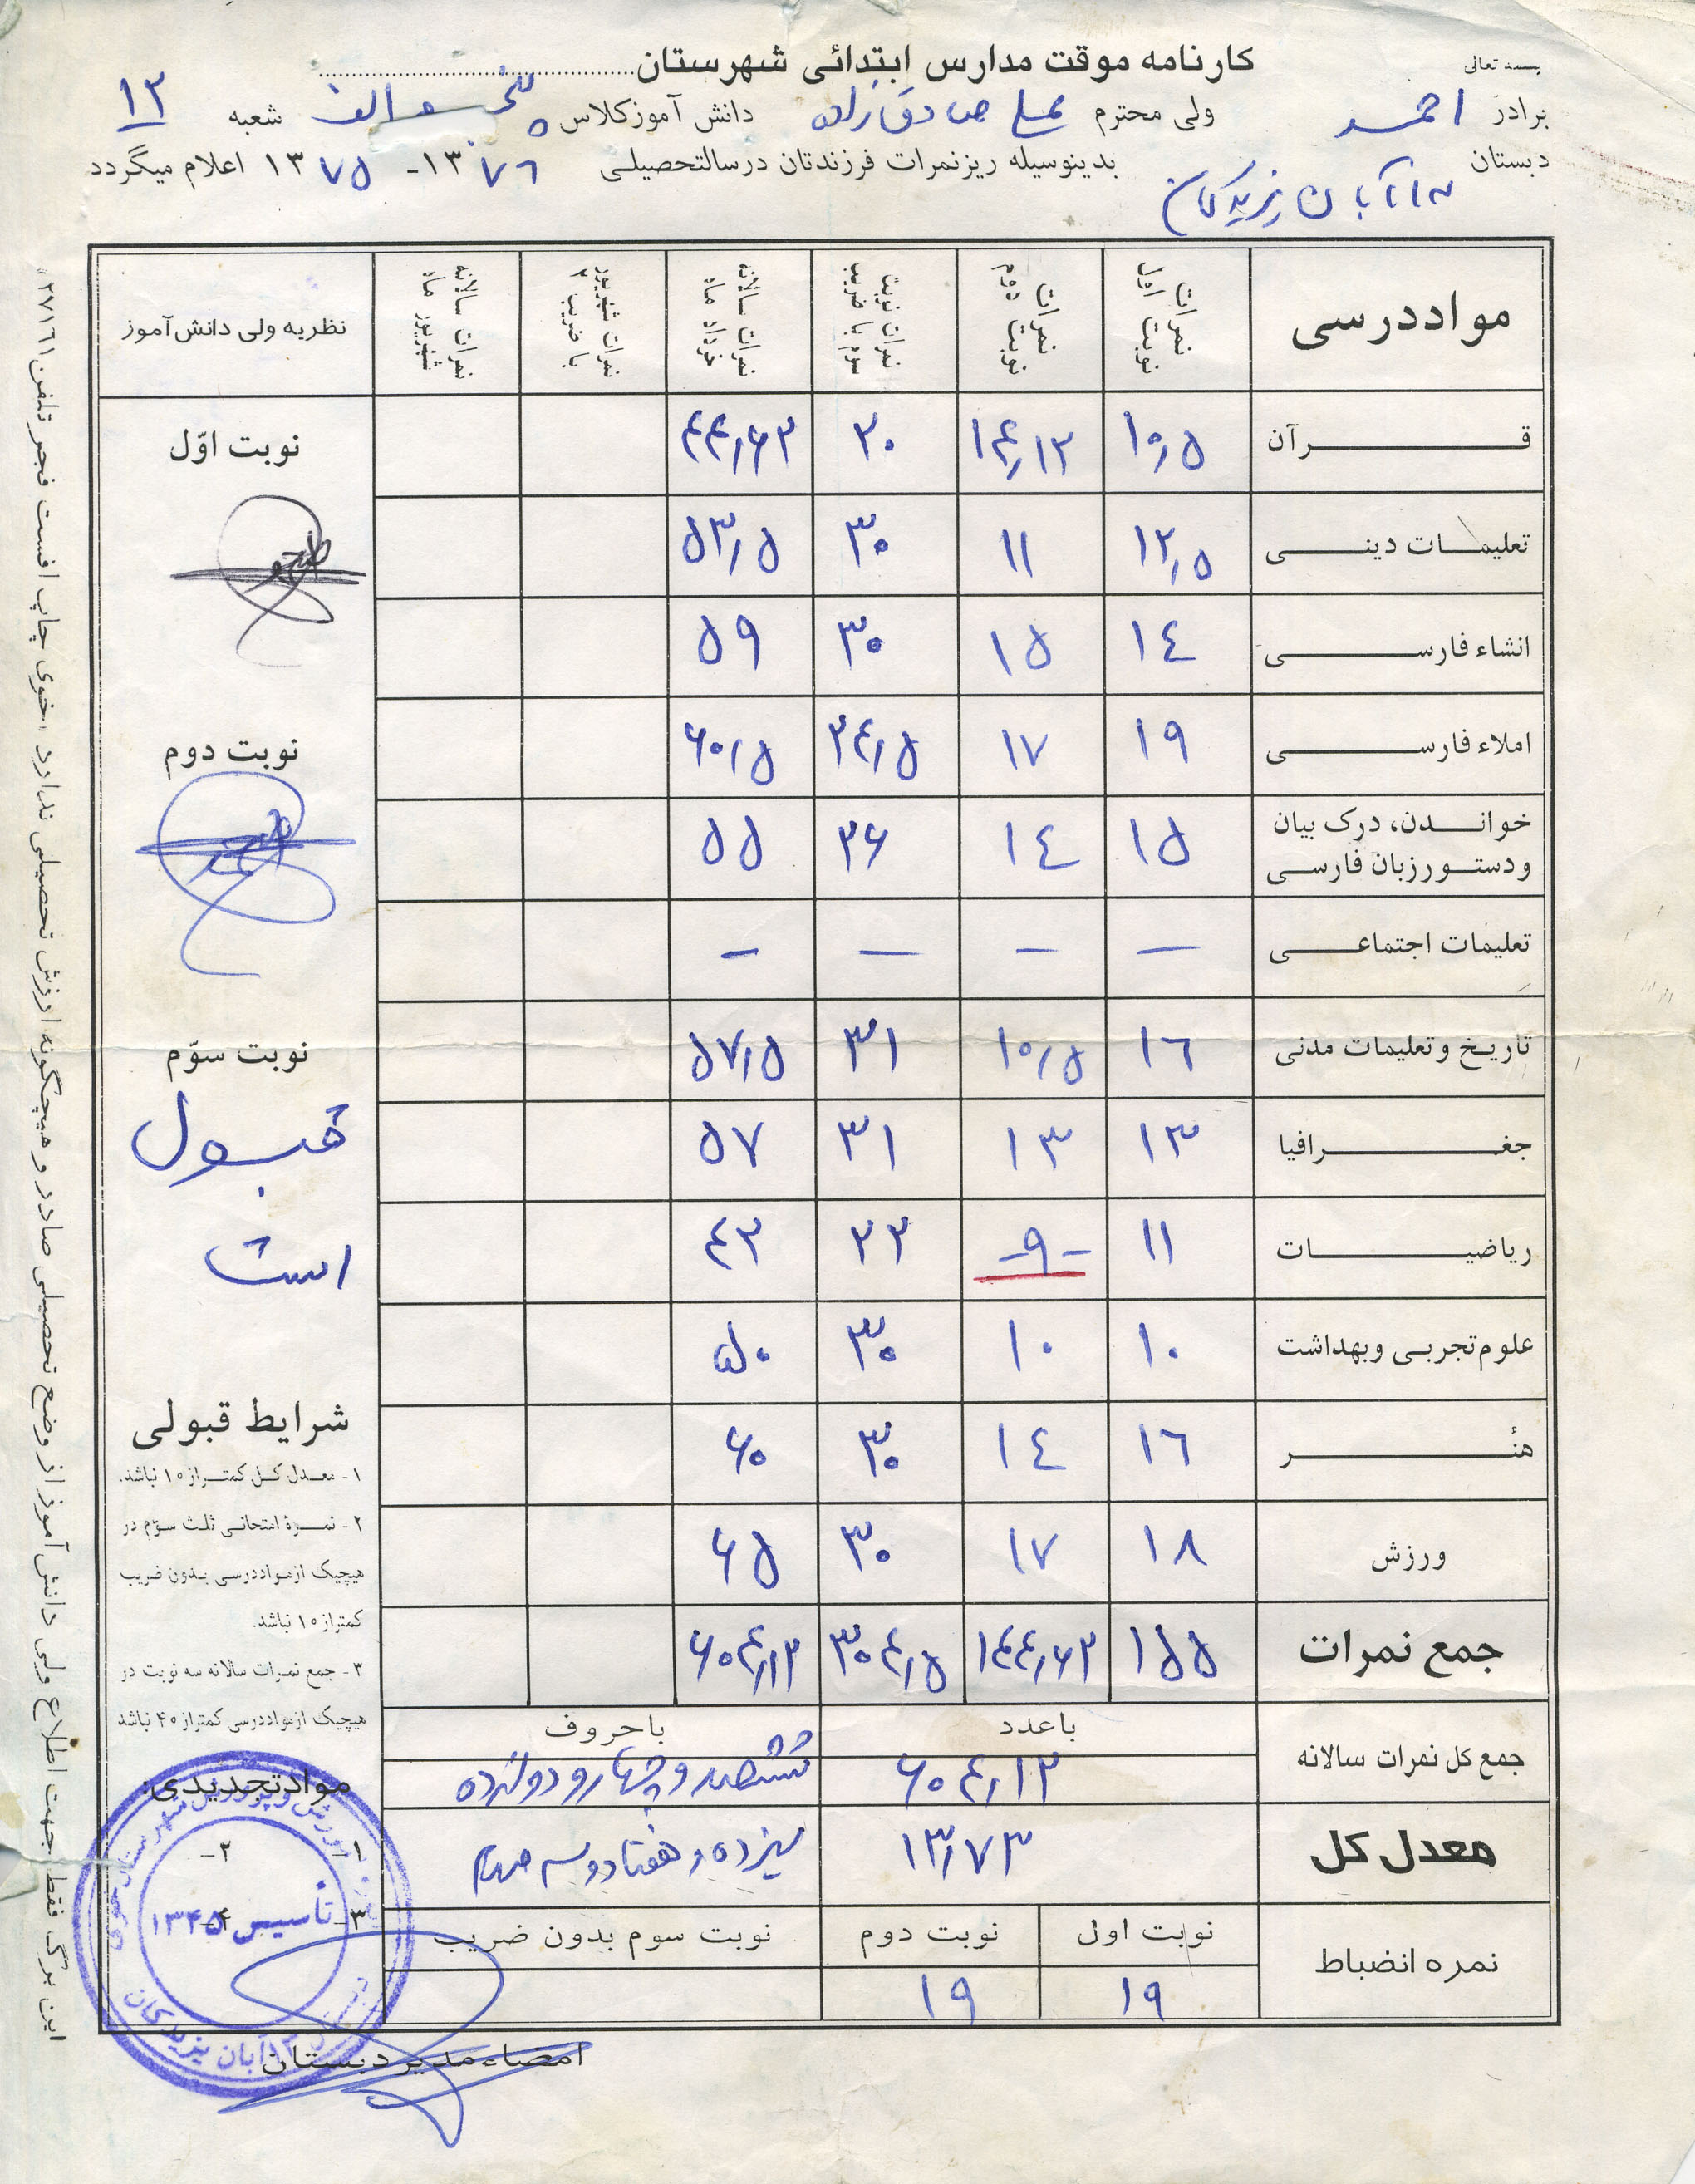 بسمه تعالی
کارنامه موقت مدارس ابتدائی شهرستان
برادر احمد ولی محترم صادق زاده دانش آموز کلاس پنجم الف شعبه ۱۳
دبستان ۱۳ آبان یزیدکان بدینوسیله ریزنمرات فرزندتان درسالتحصیلی ۱۳۷۶ - ۱۳۷۵ اعلام میگردد
مواددرسی نمرات نوبت اول نمرات نوبت دوم نمرات نوبت سوم با ضریب نمرات سالانه خرداد ماه نمرات شهریور با ضریب ۲ نمرات سالانه شهریور ماه نظریه ولی دانش آموز
قرآن ۱۰,۵ ۱۴,۱۳ ۲۰ ۴۴,۶۳
تعلیمات دینی ۱۲,۵ ۱۱ ۳۰ ۵۳,۵
انشاء فارسی ۱۴ ۱۵ ۳۰ ۵۹
املاء فارسی ۱۹ ۱۷ ۲۴,۵ ۶۰,۵
خواندن، درک بیان ودستورزبان فارسی ۱۵ ۱۴ ۲۶ ۵۵
تعلیمات اجتماعی - - - -
تاریخ وتعلیمات مدنی ۱۶ ۱۰,۵ ۳۱ ۵۷,۵
جغرافیا ۱۳ ۱۳ ۳۱ ۵۷
ریاضیات ۱۱ -۹- ۲۳ ۴۳
علوم تجربی وبهداشت ۱۰ ۱۰ ۳۰ ۵۰
هنر ۱۶ ۱۴ ۳۰ ۶۰
ورزش ۱۸ ۱۷ ۳۰ ۶۵
جمع نمرات ۱۵۵ ۱۴۴,۶۳ ۳۰۴,۵ ۶۰۴,۱۳
جمع کل نمرات سالانه باعدد باحروف
۶۰۴,۱۳ ششصد و چهار و دوازده
معدل کل ۱۳,۷۳ سیزده و هفتاد و سه صدم
نمره انضباط نوبت اول نوبت دوم نوبت سوم بدون ضریب
۱۹ ۱۹
نوبت اوّل
نوبت دوم
نوبت سوّم
قبول
است
شرایط قبولی
۱- معدل کل کمتراز ۱۰ نباشد.
۲- نمرهٔ امتحانی ثلث سوّم در
هیچیک ازمواددرسی بدون ضریب
کمتراز ۱۰ نباشد.
۳- جمع نمرات سالانه سه نوبت در
هیچیک ازمواددرسی کمتراز ۴۰ نباشد
موادتجدیدی:
۱- ۲-
۳- ۴-
تاسیس ۱۳۴۵
آبان یزیدکان
امضاء مدیر دبستان
این برگ فقط جهت اطلاع ولی دانش آموز از وضع تحصیلی صادر و هیچگونه ارزش تحصیلی ندارد «خوی چاپ افست فجر تلفن ۲۷۱۶۱»